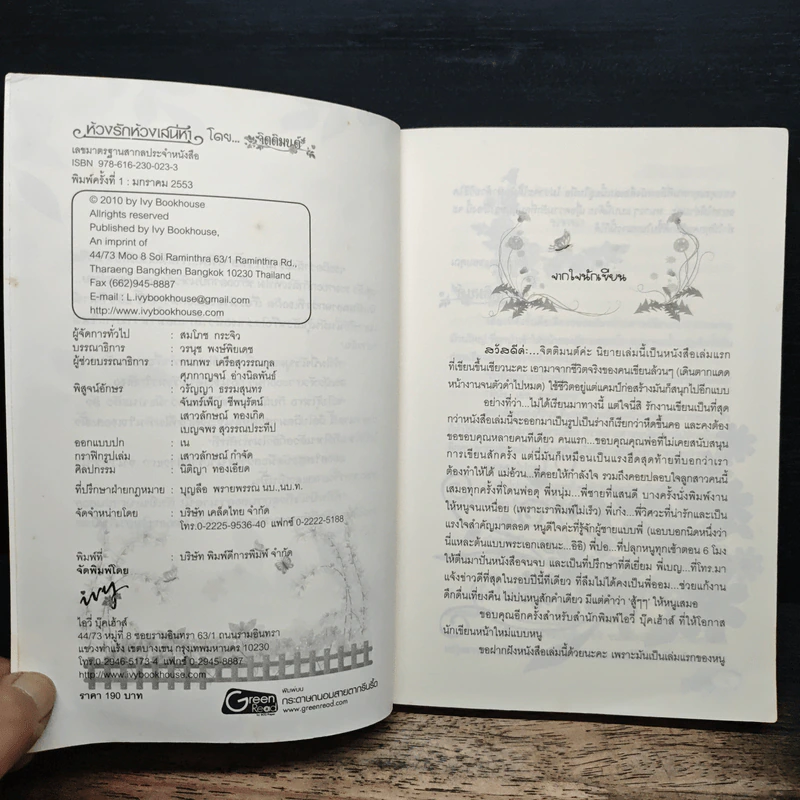 ห้วงรักห้วงเสน่หา โดย... จิตติมนต์
เลขมาตรฐานสากลประจำหนังสือ
ISBN 978-616-230-023-3
พิมพ์ครั้งที่ 1 : มกราคม 2553
© 2010 by Ivy Bookhouse
Allrights reserved
Published by Ivy Bookhouse,
An imprint of
44/73 Moo 8 Soi Raminthra 63/1 Raminthra Rd.,
Tharaeng Bangkhen Bangkok 10230 Thailand
Fax (662)945-8887
E-mail : L.ivybookhouse@gmail.com
http://www.ivybookhouse.com
ผู้จัดการทั่วไป : สมโภช กระจิว
บรรณาธิการ : วรนุช พงษ์พิยเดช
ผู้ช่วยบรรณาธิการ : กนกพร เครือสุวรรณกุล
ศุภกาญจน์ อ่างนิลพันธ์
พิสูจน์อักษร : วรัญญา ธรรมสุนทร
จันทร์เพ็ญ ชีพนุรัตน์
เสาวลักษณ์ ทองเกิด
เบญจพร สุวรรณประทีป
ออกแบบปก : เน
กราฟิกรูปเล่ม : เสาวลักษณ์ กำจัด
ศิลปกรรม : นิติญา ทองเอียด
ที่ปรึกษาฝ่ายกฎหมาย : บุญลือ พรายพรรณ นบ.,นบ.ท.
จัดจำหน่ายโดย : บริษัท เคล็ดไทย จำกัด
โทร.0-2225-9536-40 แฟกซ์ 0-2222-5188
พิมพ์ที่ : บริษัท พิมพ์ดีการพิมพ์ จำกัด
จัดพิมพ์โดย
ivy
ไอวี่ บุ๊คเฮ้าส์
44/73 หมู่ที่ 8 ซอยรามอินทรา 63/1 ถนนรามอินทรา
แขวงท่าแร้ง เขตบางเขน กรุงเทพมหานคร 10230
โทร.0-2946-5173-4 แฟกซ์ 0-2945-8887
http://www.ivybookhouse.com
ราคา 190 บาท
Green Read
พิมพ์บน
กระดาษถนอมสายตากรีนรี้ด
www.greenread.com
จากใจนักเขียน
สวัสดีค่ะ...จิตติมนต์ค่ะ นิยายเล่มนี้เป็นหนังสือเล่มแรก
ที่เขียนขึ้นเชียวนะคะ เอามาจากชีวิตจริงของคนเขียนล้วนๆ (เดินตากแดด
หน้างานจนตัวดำไปหมด) ใช้ชีวิตอยู่แต่แคมป์ก่อสร้างมันก็สนุกไปอีกแบบ
อย่างที่ว่า...ไม่ได้เรียนมาทางนี้ แต่ใจนี่สิ รักงานเขียนเป็นที่สุด
กว่าหนังสือเล่มนี้จะออกมาเป็นรูปเป็นร่างก็เรียกว่าหืดขึ้นคอ และคงต้อง
ขอขอบคุณหลายคนทีเดียว คนแรก...ขอบคุณคุณพ่อที่ไม่เคยสนับสนุน
การเขียนสักครั้ง แต่นี่มันก็เหมือนเป็นแรงฮึดสุดท้ายที่บอกว่าเรา
ต้องทำให้ได้ แม่อ้วน...ที่คอยให้กำลังใจ รวมถึงคอยปลอบใจลูกสาวคนนี้
เสมอทุกครั้งที่โดนพ่อดุ พี่หนุ่ม...พี่ชายที่แสนดี บางครั้งนั่งพิมพ์งาน
ให้หนูจนเหนื่อย (เพราะเราพิมพ์ไม่เร็ว) พี่เก๋ง...พี่วิศวะที่น่ารักและเป็น
แรงใจสำคัญมาตลอด หนูดีใจค่ะที่รู้จักผู้ชายแบบพี่ (แอบบอกนิดหนึ่งว่า
นี่แหละต้นแบบพระเอกเลยนะ...อิอิ) พี่ปอ...ที่ปลุกหนูทุกเช้าตอน 6 โมง
ให้ตื่นมาปั่นหนังสือจนจบ และเป็นที่ปรึกษาที่ดีเยี่ยม พี่เบญ...ที่โทร.มา
แจ้งข่าวดีที่สุดในรอบปีนี้ก็เดียว ที่ลืมไม่ได้คงเป็นพี่ออม...ช่วยแก้งาน
ดึกดื่นเที่ยงคืน ไม่บ่นหนูสักคำเดียว มีแต่คำว่า 'สู้ๆๆ' ให้หนูเสมอ
ขอบคุณอีกครั้งสำหรับสำนักพิมพ์ไอวี่ บุ๊คเฮ้าส์ ที่ให้โอกาส
นักเขียนหน้าใหม่แบบหนู
ขอฝากฝังหนังสือเล่มนี้ด้วยนะคะ เพราะมันเป็นเล่มแรกของหนู